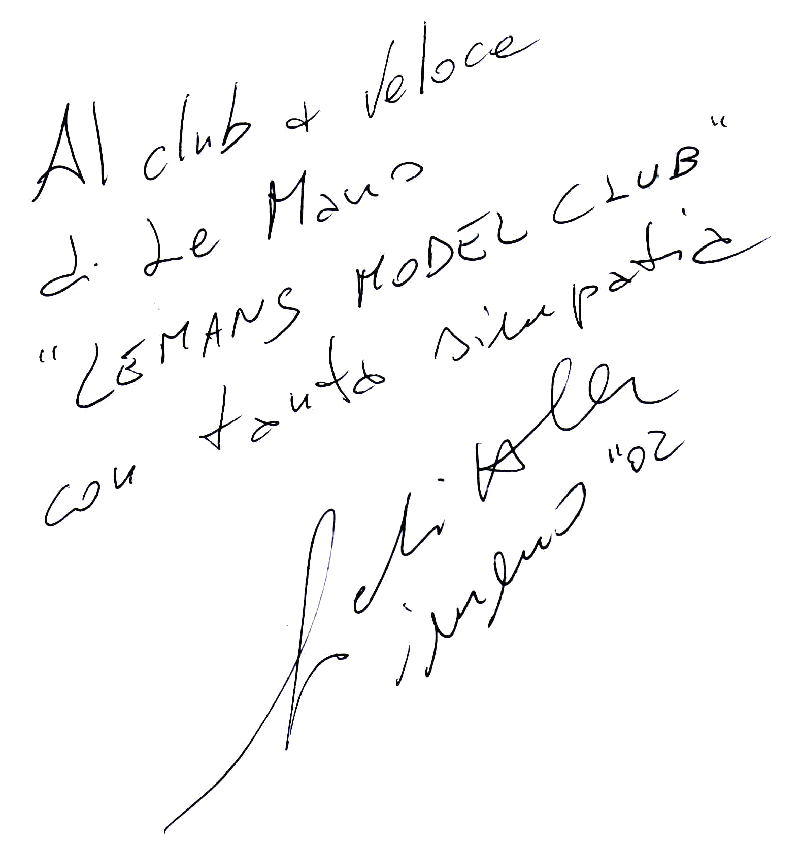 Al club + veloce
di Le Mans
"LEMANS MODEL CLUB"
con tanta simpatia
"02